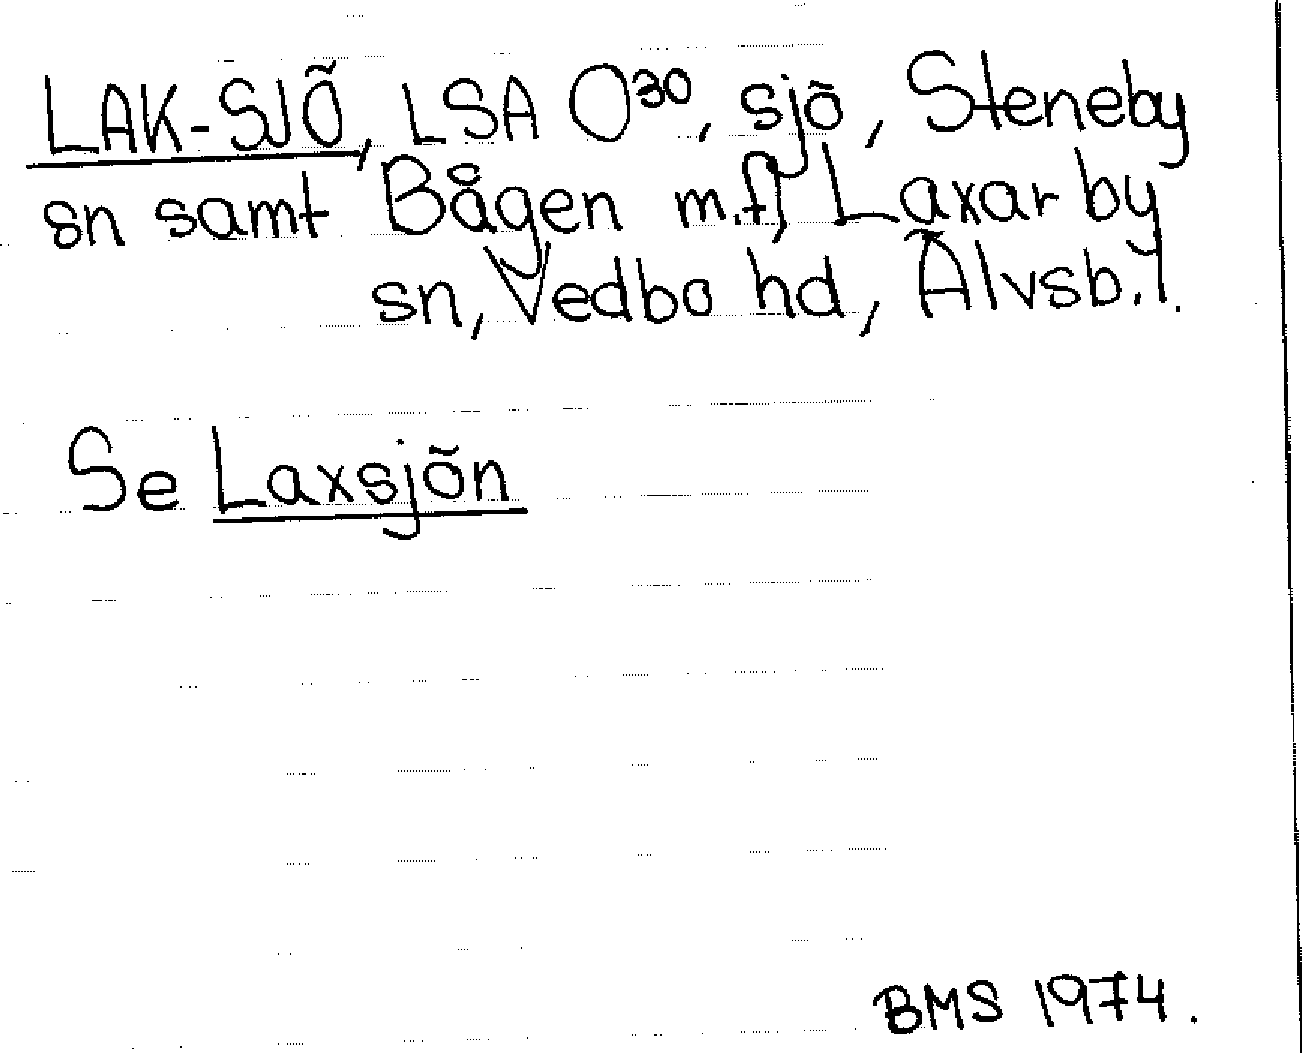 LAK-SJÖ, LSA O³⁰, sjö, Steneby
sn samt Bågen m.fl, Laxarby
sn, Vedbo hd, Älvsb.l.
Se Laxsjön
BMS 1974.